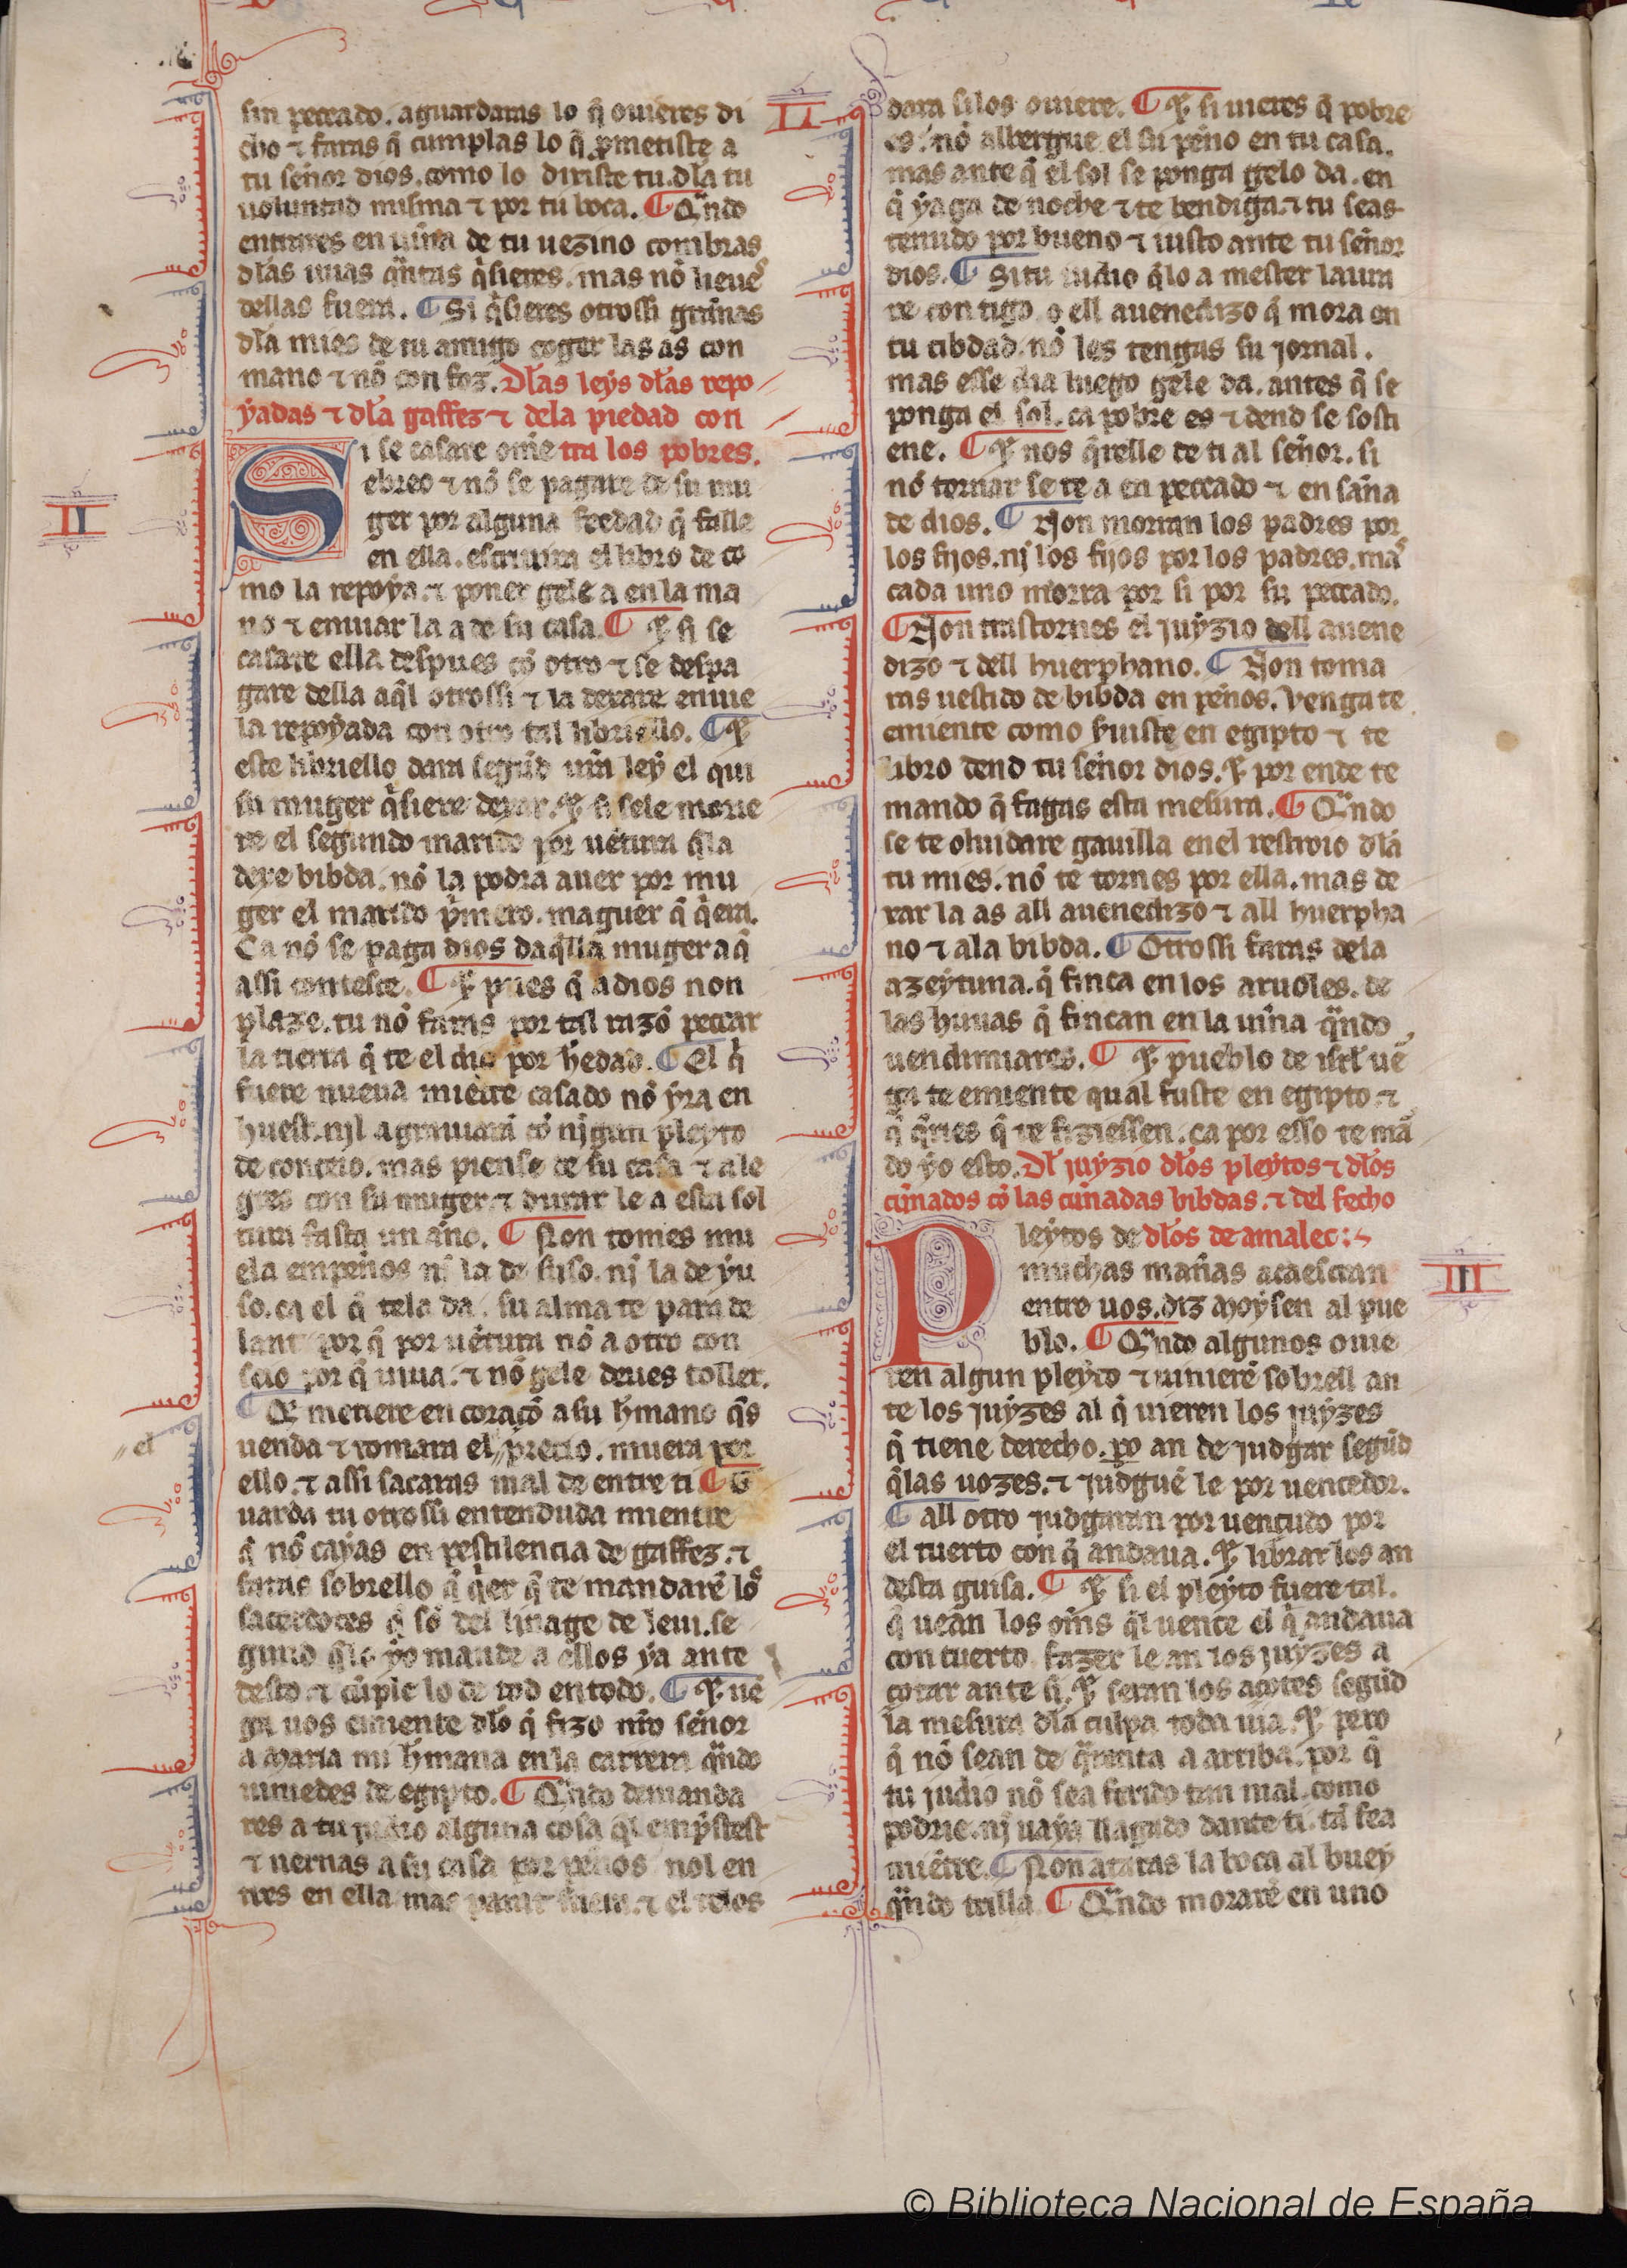 sin peccado. aguardaras lo q̃ ouieres di
cho ⁊ faras q̃ cumplas lo q̃ ꝓmetiste a
tu señor dios. como lo dixiste tu. dl̃a tu
uoluntad misma ⁊ por tu boca. ¶ Qũndo
entrares en uiña de tu uezino combras
dl̃as uuas qũntas q̃sieres. mas nõ lieue᷒
dellas fuera. ¶ Si q̃sieres otrossi granas
dl̃a mies de tu amigo coger las as con
mano ⁊ nõ con foz. Dl̃as leys dl̃as repo
yadas ⁊ dl̃a gaffez ⁊ dela piedad con
Si se casare om̃e tra los pobres.
II
ebreo ⁊ nõ se pagare de su mu
ger por alguna feedad q̃ falle
en ella. escriuira el libro de co
mo la repoya. ⁊ poner gele a en la ma
no ⁊ enuiar la a de su casa. ¶ ⁊ si se
casare ella despues cõ otro ⁊ se despa
gare della aq̃l otrossi ⁊ la dexare enuie
la repoyada con otro tal libriello. ¶ ⁊
este libriello dara segũd ur̃a ley el qui
su muger q̃siere dexar. ⁊ si sele morie
re el segundo marido por uẽtura q̃la
dexe bibda. nõ la podra auer por mu
ger el marido p̃mero. maguer q̃ q̃era.
Ca nõ se paga dios daq̃lla muger a q̃
assi contesce. ¶ ⁊ pues q̃ a dios non
plaze. tu nõ faras por tal razõ peccar
la tierra q̃ te el dio por h̃edad. ¶ El q̃
fuere nueua mietre casado nõ yra en
huest. nil agrauarã cõ nigun pleyto
de conceio. mas piense de su casa ⁊ ale
gres con su muger. ⁊ durar le a esta sol
tura fasta un año. ¶ Non tomes mu
ela empeños ni la de suso. ni la de yu
so. ca el q̃ tela da. su alma te para de
lant por q̃ por uẽtura nõ a otro con
seio por q̃ uiua. ⁊ nõ gele deues toller.
¶ Qi metiere en coraçõ a su h̃mano q̃s
uenda ⁊ tomara el precio. muera por
el
ello. ⁊ assi sacaras mal de entre ti. ¶ G
uarda tu otrossi entenduda mientre
q̃ nõ cayas en pestilencia de gaffez. ⁊
faras sobrello q̃ q̃er q̃ te mandarẽ lo᷒
sacerdotes q̃ sõ del linage de leui. se
gund q̃lo yo mande a ellos ya ante
desto. ⁊ cũple lo de tod en todo. ¶ ⁊ uẽ
ga uos emiente dl̃o q̃ fizo nr̃o señor
a Maria mi h̃mana en la carrera qũndo
uiniedes de egipto. ¶ Qũndo demanda
res a tu judio alguna cosa q̃l enp̃stest
⁊ uernas a su casa por peños nol en
tres en ella. mas parat fuera. ⁊ el telos
II
dara silos ouiere. ¶ ⁊ si uieres q̃ pobre
es. nõ albergue el su peño en tu casa.
mas ante q̃ el sol se ponga gelo da. en
q̃ yaga de noche ⁊ te bendiga. ⁊ tu seas
tenudo por bueno ⁊ iusto ante tu señor
dios. ¶ Si tu iudio q̃lo a mester laura
re contigo. o ell auenedizo q̃ mora en
tu cibdad. nõ les tengas su jornal.
mas esse dia luego gele da. antes q̃ se
ponga el sol. ca pobre es ⁊ dend se sosti
ene. ¶ ⁊ nos q̃relle de ti al señor. si
nõ tornar se te a en peccado ⁊ en saña
de dios. ¶ Non morran los padres por
los fijos. ni los fijos por los padres. ma᷒
cada uno morra por si por su peccado.
¶ Non trastornes el juyzio dell auene
dizo ⁊ dell huerphano. ¶ Non toma
ras uestido de bibda en peños. Venga te
emiente como s̃uiste en egipto ⁊ te
libro dend tu señor dios. ⁊ por ende te
mando q̃ fagas esta mesura. ¶ Qũndo
se te oluidare gauilla enel restroio dl̃a
tu mies. nõ te tornes por ella. mas de
xar la as all auenedizo ⁊ all huerpha
no ⁊ ala bibda. ¶ Otrossi faras dela
azeytuna. q̃ finca en los aruoles. de
las huuas q̃ fincan en la uiña qũndo
uendimiares. ¶ ⁊ pueblo de isrl̃ uẽ
ga te emiente qual fuste en egipto ⁊
q̃ q̃ries q̃ te fiziessen. ca por esso te mã
do yo esto. Dl̃ juyzio dl̃os pleytos ⁊ dl̃os
cuñados cõ las cuñadas bibdas. ⁊ del fecho
Pleytos de dl̃os de amalec:
muchas mañas acaescran
III
entre uos. diz Moysen al pue
blo. ¶ Qũndo algunos ouie
ren algun pleyto ⁊ uinierẽ sobrell an
te los juyzes al q̃ uieren los juyzes
q̃ tiene derecho. po an de judgar segũd
q̃las uozes. ⁊ judguẽ le por uencedor.
¶ all otro judgaran por uencudo por
el tuerto con q̃ andaua. ⁊ librar los an
desta guisa. ¶ ⁊ si el pleyto fuere tal.
q̃ uean los om̃s q̃l uence el q̃ andaua
con tuerto. fazer le an los juyzes a
cotar ante si. ⁊ seran los açotes segũd
la mesura dl̃a culpa toda uia. ⁊ pero
q̃ nõ sean de q̃raenta a arriba. por q̃
tu judio nõ sea ferido tan mal. como
podrie. ni uaya llagado dante ti. tã fea
miẽtre. ¶ Non ataras la boca al buey
qũndo trilla. ¶ Qũndo morarẽ en uno
© Biblioteca Nacional de España